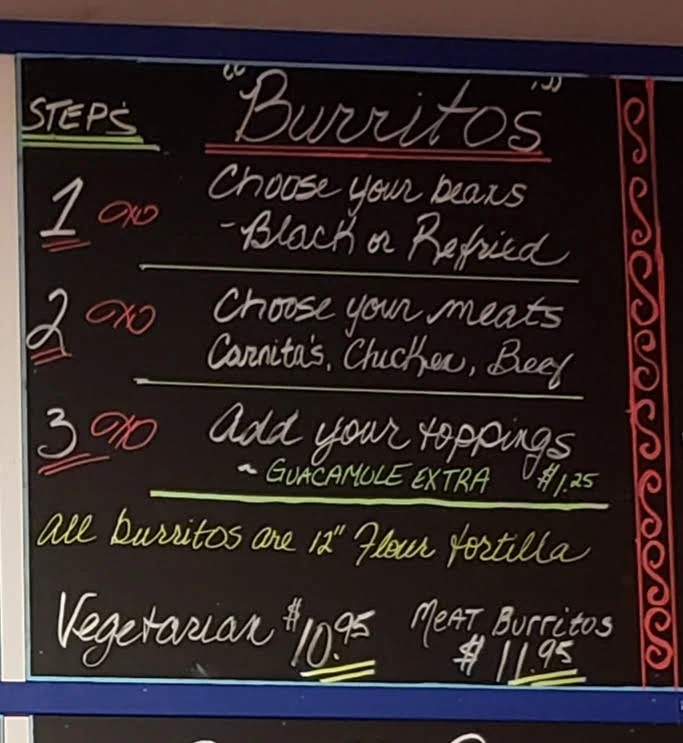 "Burritos"
STEP'S
1 Choose your beans
- Black or Refried
2 Choose your meats
Carnita's, Chicken, Beef
3 Add your toppings
~ GUACAMOLE EXTRA $1.25
All burritos are 12" Flour tortilla
Vegetarian $10.95
MEAT Burritos
$11.95